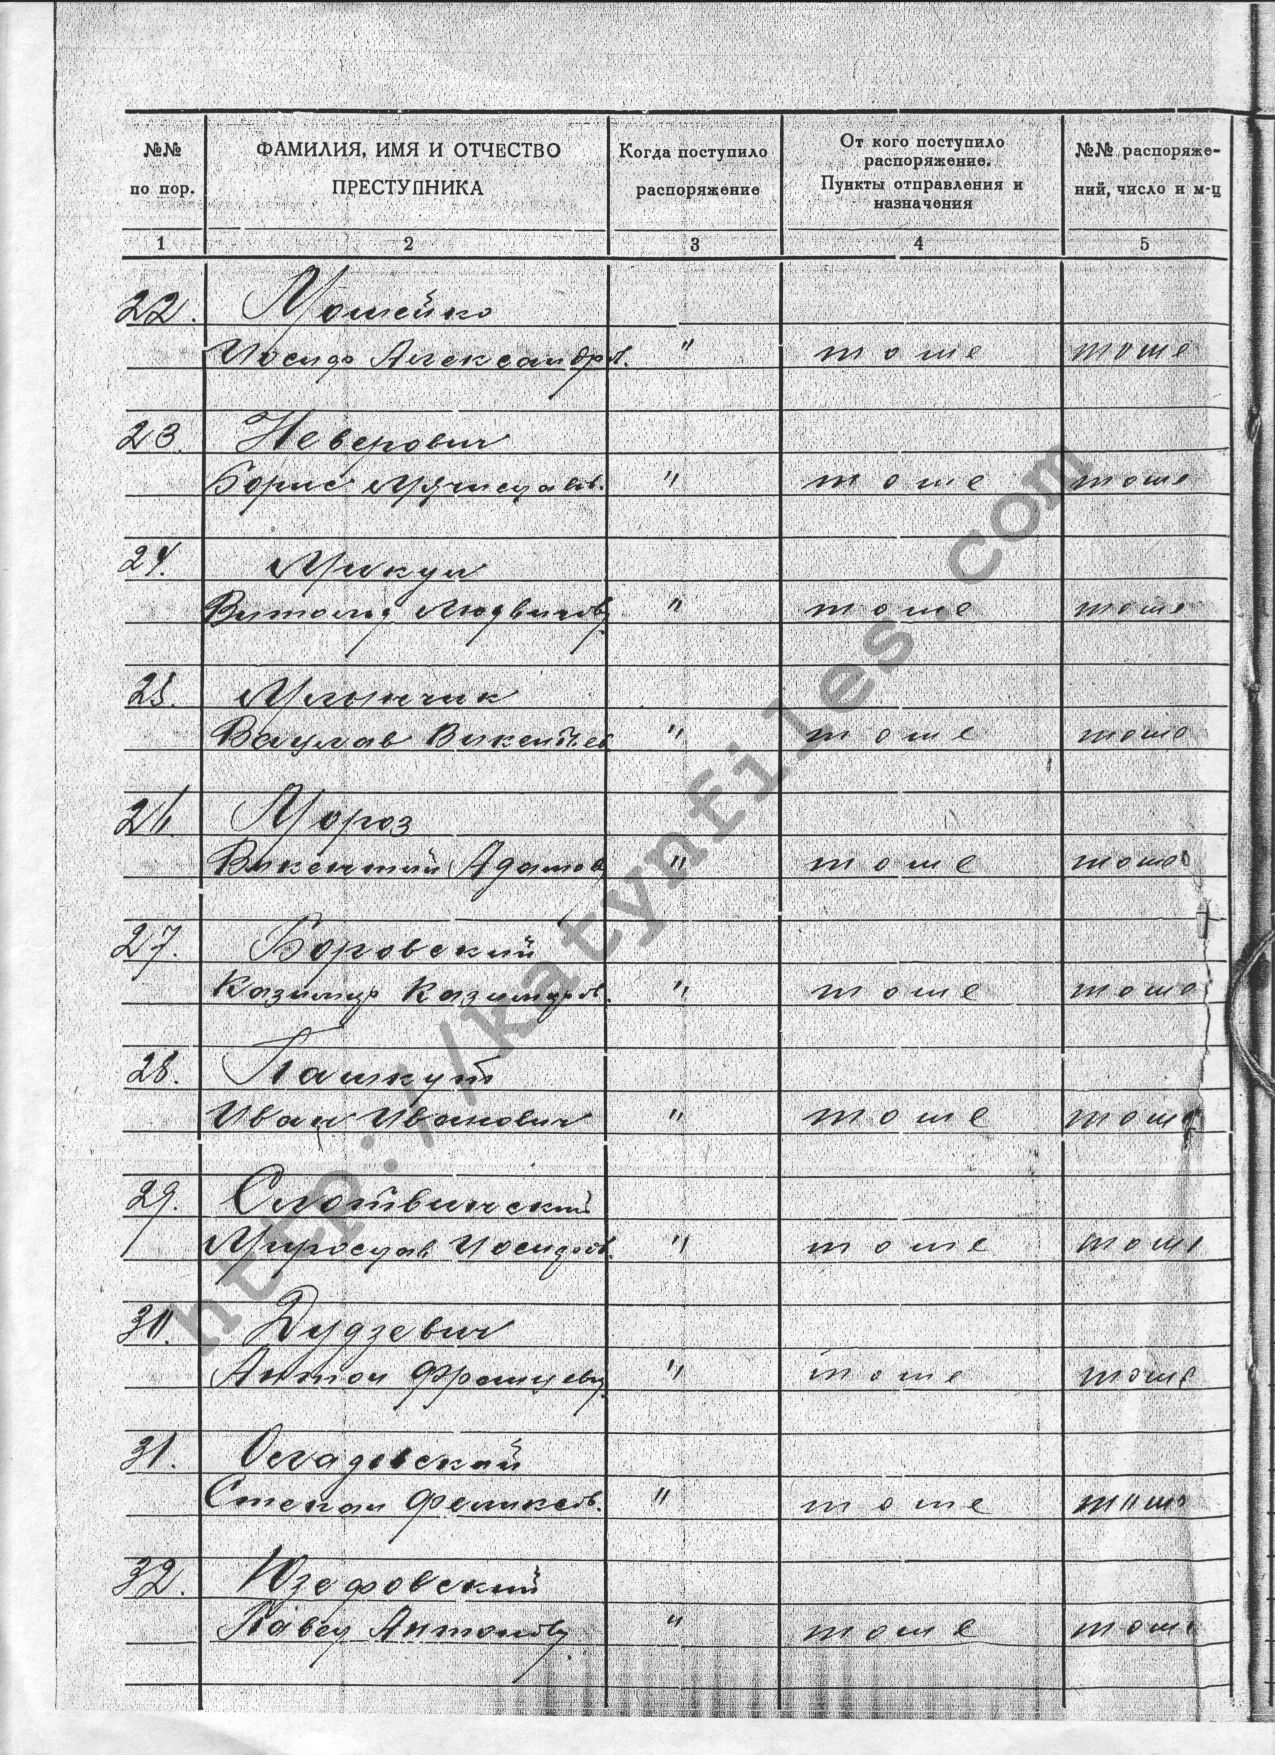 №№ по пор.
ФАМИЛИЯ, ИМЯ И ОТЧЕСТВО ПРЕСТУПНИКА
Когда поступило распоряжение
От кого поступило распоряжение. Пункты отправления и назначения
№№ распоряжений, число и м-ц
1 2 3 4 5
22. Мошейко
Иосиф Александров. " то же то же
23. Неверович
Борис Мечиславов. " то же то же
24. Микул
Витольд Людвигов. " то же то же
25. Млынчик
Вацлав Викентьев " то же то же
26. Мороз
Викентий Адамов " то же то же
27. Боровский
Казимир Казимиров. " то же то же
28. Пашкут
Иван Иванович " то же то же
29. Слотвинский
Мирослав Иосифов. " то же то же
30. Дудзевич
Антон Францев. " то же то же
31. Осладовский
Степан Феликсов. " то же то же
32. Юзефовский
Павел Антонов. " то же то же
http://katynfiles.com